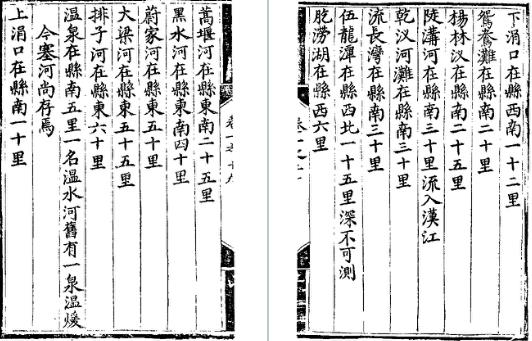 下涓口在縣西南一十二里
鴛鴦灘在縣南二十里
楊林汊在縣南二十五里
陡溝河在縣南三十里流入漢江
乾汊河灘在縣南三十里
流長灣在縣南三十里
伍龍潭在縣西北一十五里深不可測
肐澇湖在縣西六里
蒿堰河在縣東南二十五里
黑水河在縣東南四十里
蔚家河在縣東五十里
大梁河在縣東五十五里
排子河在縣東六十里
溫泉在縣南五里一名溫水河舊有一泉溫煖
今塞河尚存焉
上涓口在縣南一十里